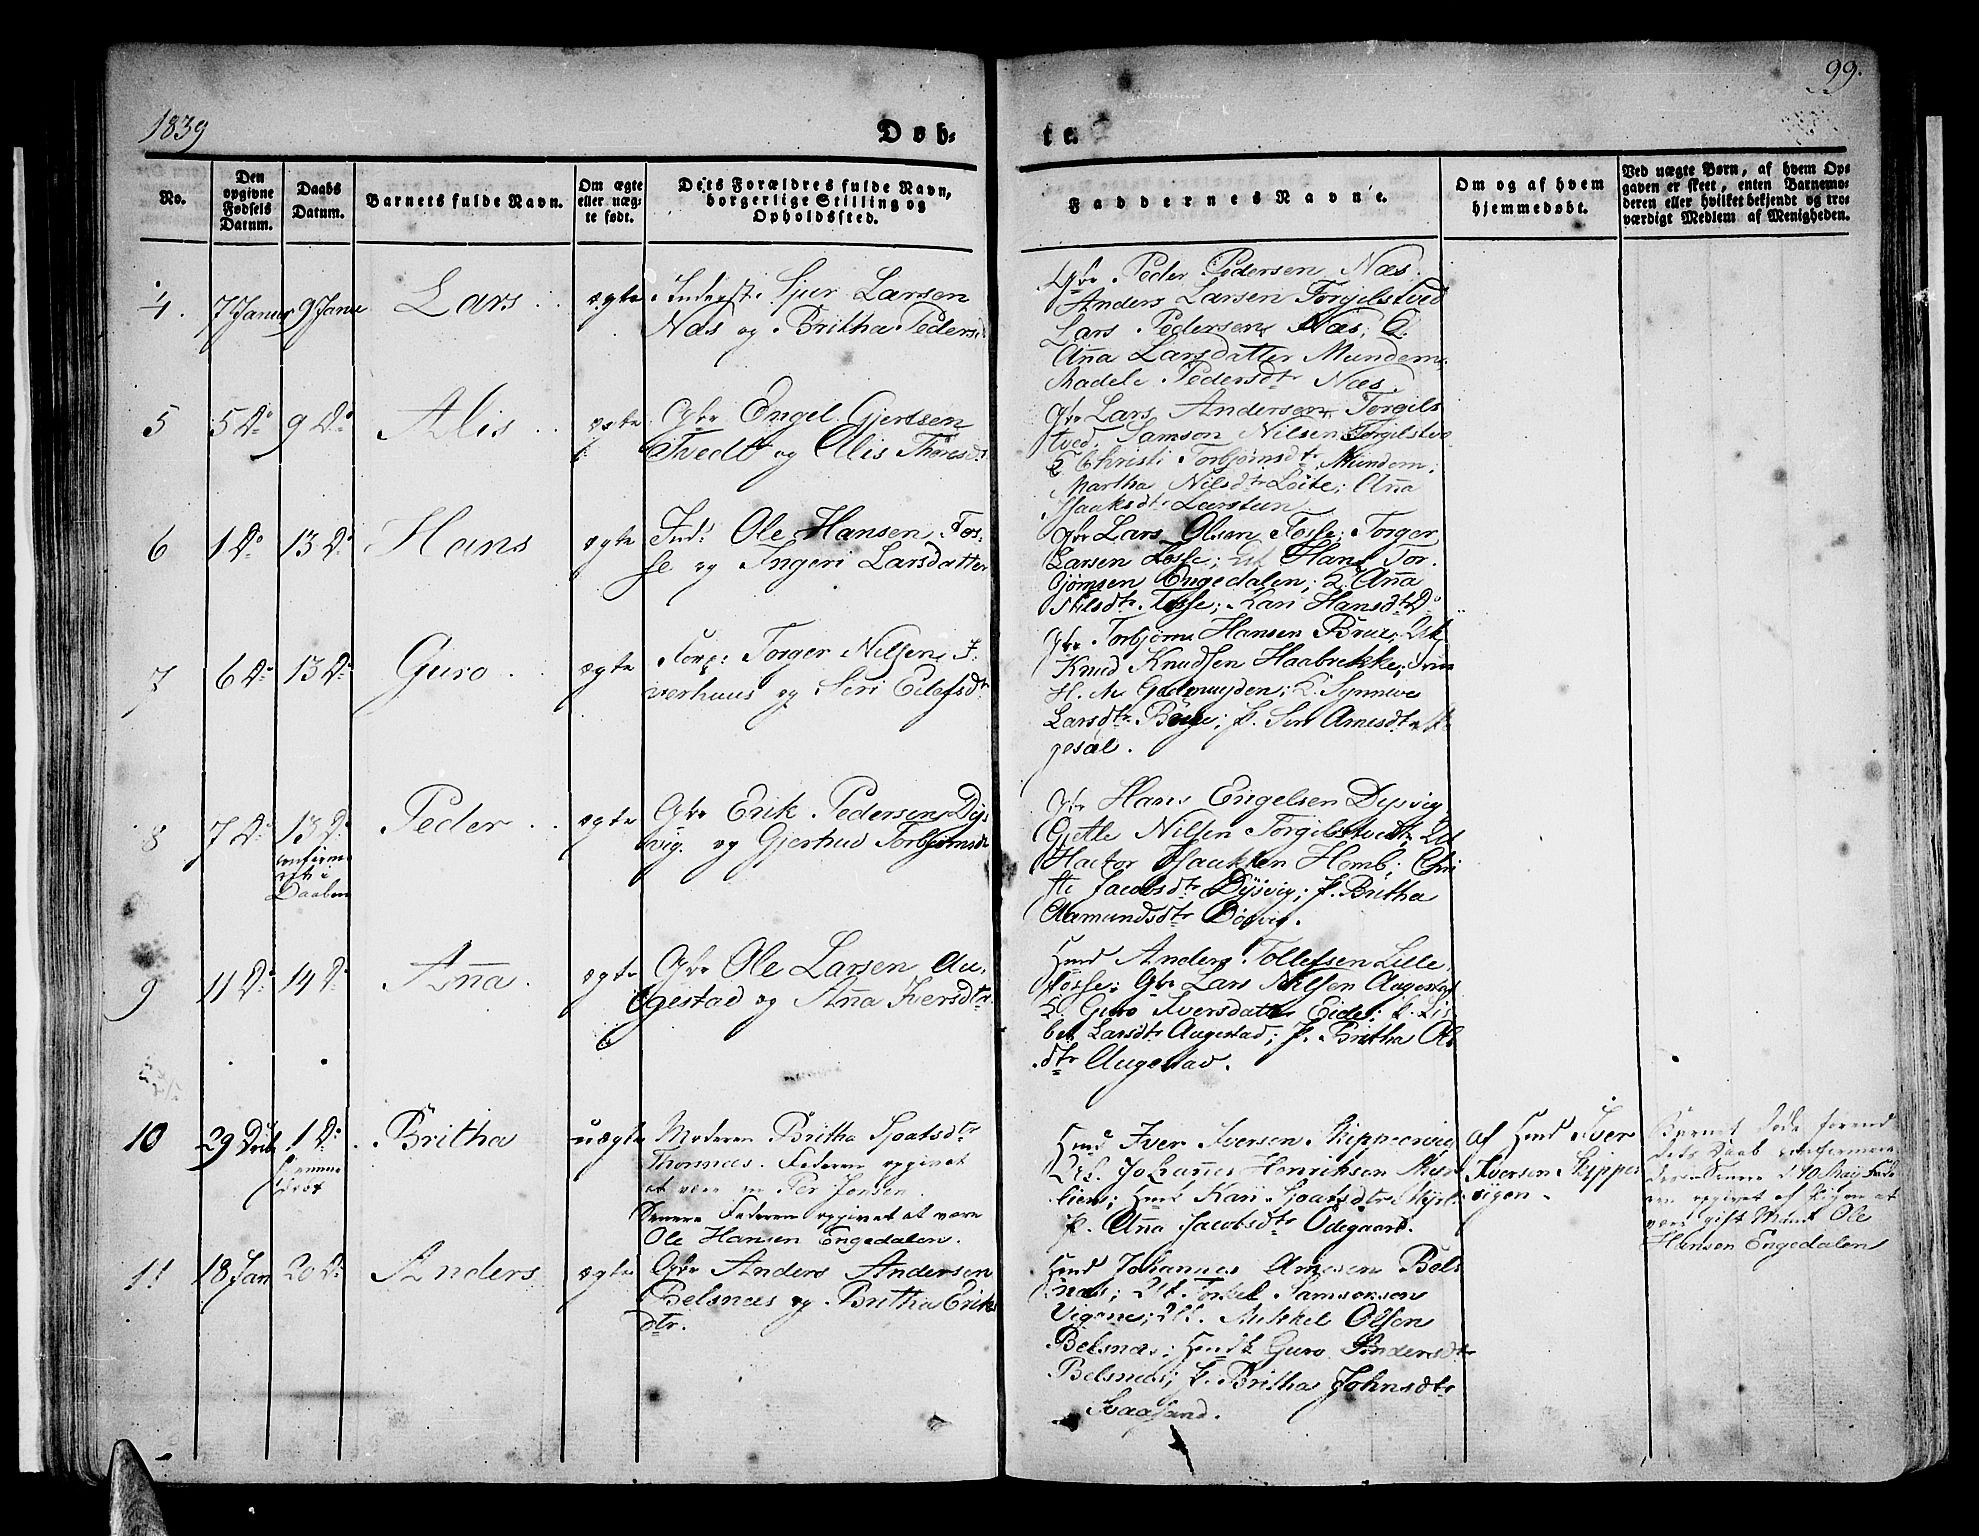 1839
Døb-
te.
99.
No.
Den
opgivne
Fødsels
Datum.
Daabs
Datum.
Barnets fulde Navn.
Om ægte
eller uæg-
te født.
Dets Forældres fulde Navn,
borgerlige Stilling og
Opholdssted.
Faddernes Navne.
Om og af hvem
hjemmedøbt.
Ved uægte Børn, af hvem Op-
gaven er skeet, enten Barnemo-
deren eller hvilket bekjendt og tro-
værdigt Medlem af Menigheden.
4. 7 Januar 9 Janu Lars ægte Inderst. Sjur Larsen
Næs og Britha Peders
Gbr Peder Pedersen Næs.
Anders Larsen Torgilstved
Lars Pedersen Næs;
Aña Larsdatter Mundem,
Madele Pedersdtr Næs.
5 5 Do 9 Do Alis ægte Gbr Engel Gjertsen
Tvedt og Alis Thoresdt
Gbr Lars Andersen Torgils
tved. Samson Nilsen Torgilstve
Christi Torbjørnsdtr Mundem;
Martha Nilsdtr Løite; Aña
Isaaksdtr
6 1 Do 13 Do Hans ægte Ind: Ole Hansen Fos-
se og Ingeri Larsdatter
Gbr Lars Olsen Fosse; Torger
Larsen Fosse; Hans Tor-
bjørnsen Engedalen; Aña
Nilsdtr Fosse; Kari Hansdtr Do
7 6 Do 13 Do Guro ægte Torger Nilsen I-
verhuus og Siri Eilefsdt
Gbr Torbjørn Hansen Brue;
Knud Knudsen Haabrekke;
H. M. Gielmuyden; Synneve
Larsdtr Børge; P. Siri Arnesdtr
gesæl.
8 7 Do 13 Do Peder ægte Gbr Erik Pedersen Dys-
vig. og Gjertrud Torbjørnsdt
confirme-
ret i
Daaben
Gbr Hans Engelsen Dysvig,
Gjetle Nilsen Torgilstvedt;
Hactor Isaaksen Homb; Chri
sti Jacobsdtr Dysvig; P. Britha
Aamundsdtr Dysvig.
9 11 Do 14 Do Aña ægte Gbr Ole Larsen Au-
gestad og Aña Iversdtr
Hmd Anders Tollefsen Lille
fosse; Gbr Lars Nilsen Augestad
Guro Iversdatter Eide; P. Lis-
bet Larsdtr Augestad; P. Britha Ols
dtr Augestad.
10 29 Dcbr 1 Do Britha uægte Moderen Britha Sjoatsdtr
Thornæs. Faderen opgivet
at være en Per Jonsen.
Senere Faderen opgivet at være
Ole Hansen Engedalen.
Hmd Iver Iversen Skippervig
Johañes Henriksen
Kari Sjoatsdtr
P. Aña Jacobsdtr Ødegaard.
af Hmd Iver
Iversen Skipper
vigen.
Barnet døde forend
dets Daab
Senere d 10 May Fade
ren opgivet af Pigen at
være gift Mand Ole
Hansen Engedalen
11 18 Jan 20 Do Anders ægte Gbr Anders Andersen
Belsnæs og Britha Eriks
dtr.
Hmd Johannes Arnesen Bels
næs; Torkel Samsonsen
Vigene; Mikkel Olsen
Belsnæs; Guro Andersdtr
Belsnæs; P. Britha Johnsdtr